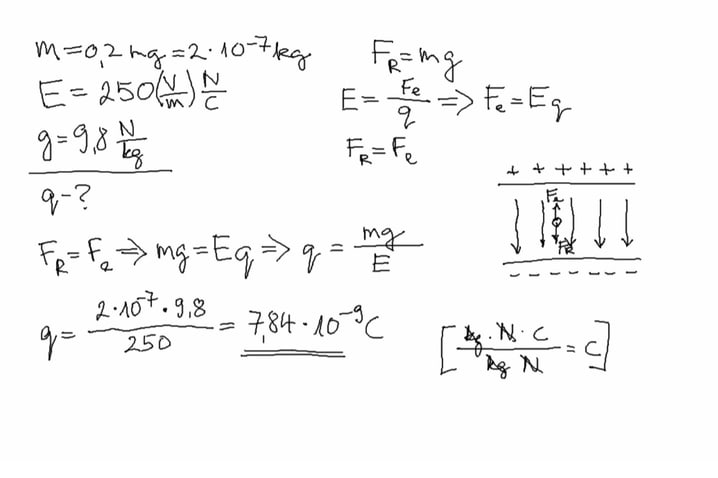 m=0,2 mg=2·10⁻⁷kg
E=250(V/m) N/C
g=9,8 N/kg
q-?
F_R=mg
E=F_e/q ⟹ F_e=Eq
F_R=F_e
+ + + + + +
F_e
F_R
− − − − − −
F_R=F_e ⟹ mg=Eq ⟹ q=mg/E
q=2·10⁻⁷·9,8/250=7,84·10⁻⁹C
[kg·N·C/kg N=C]